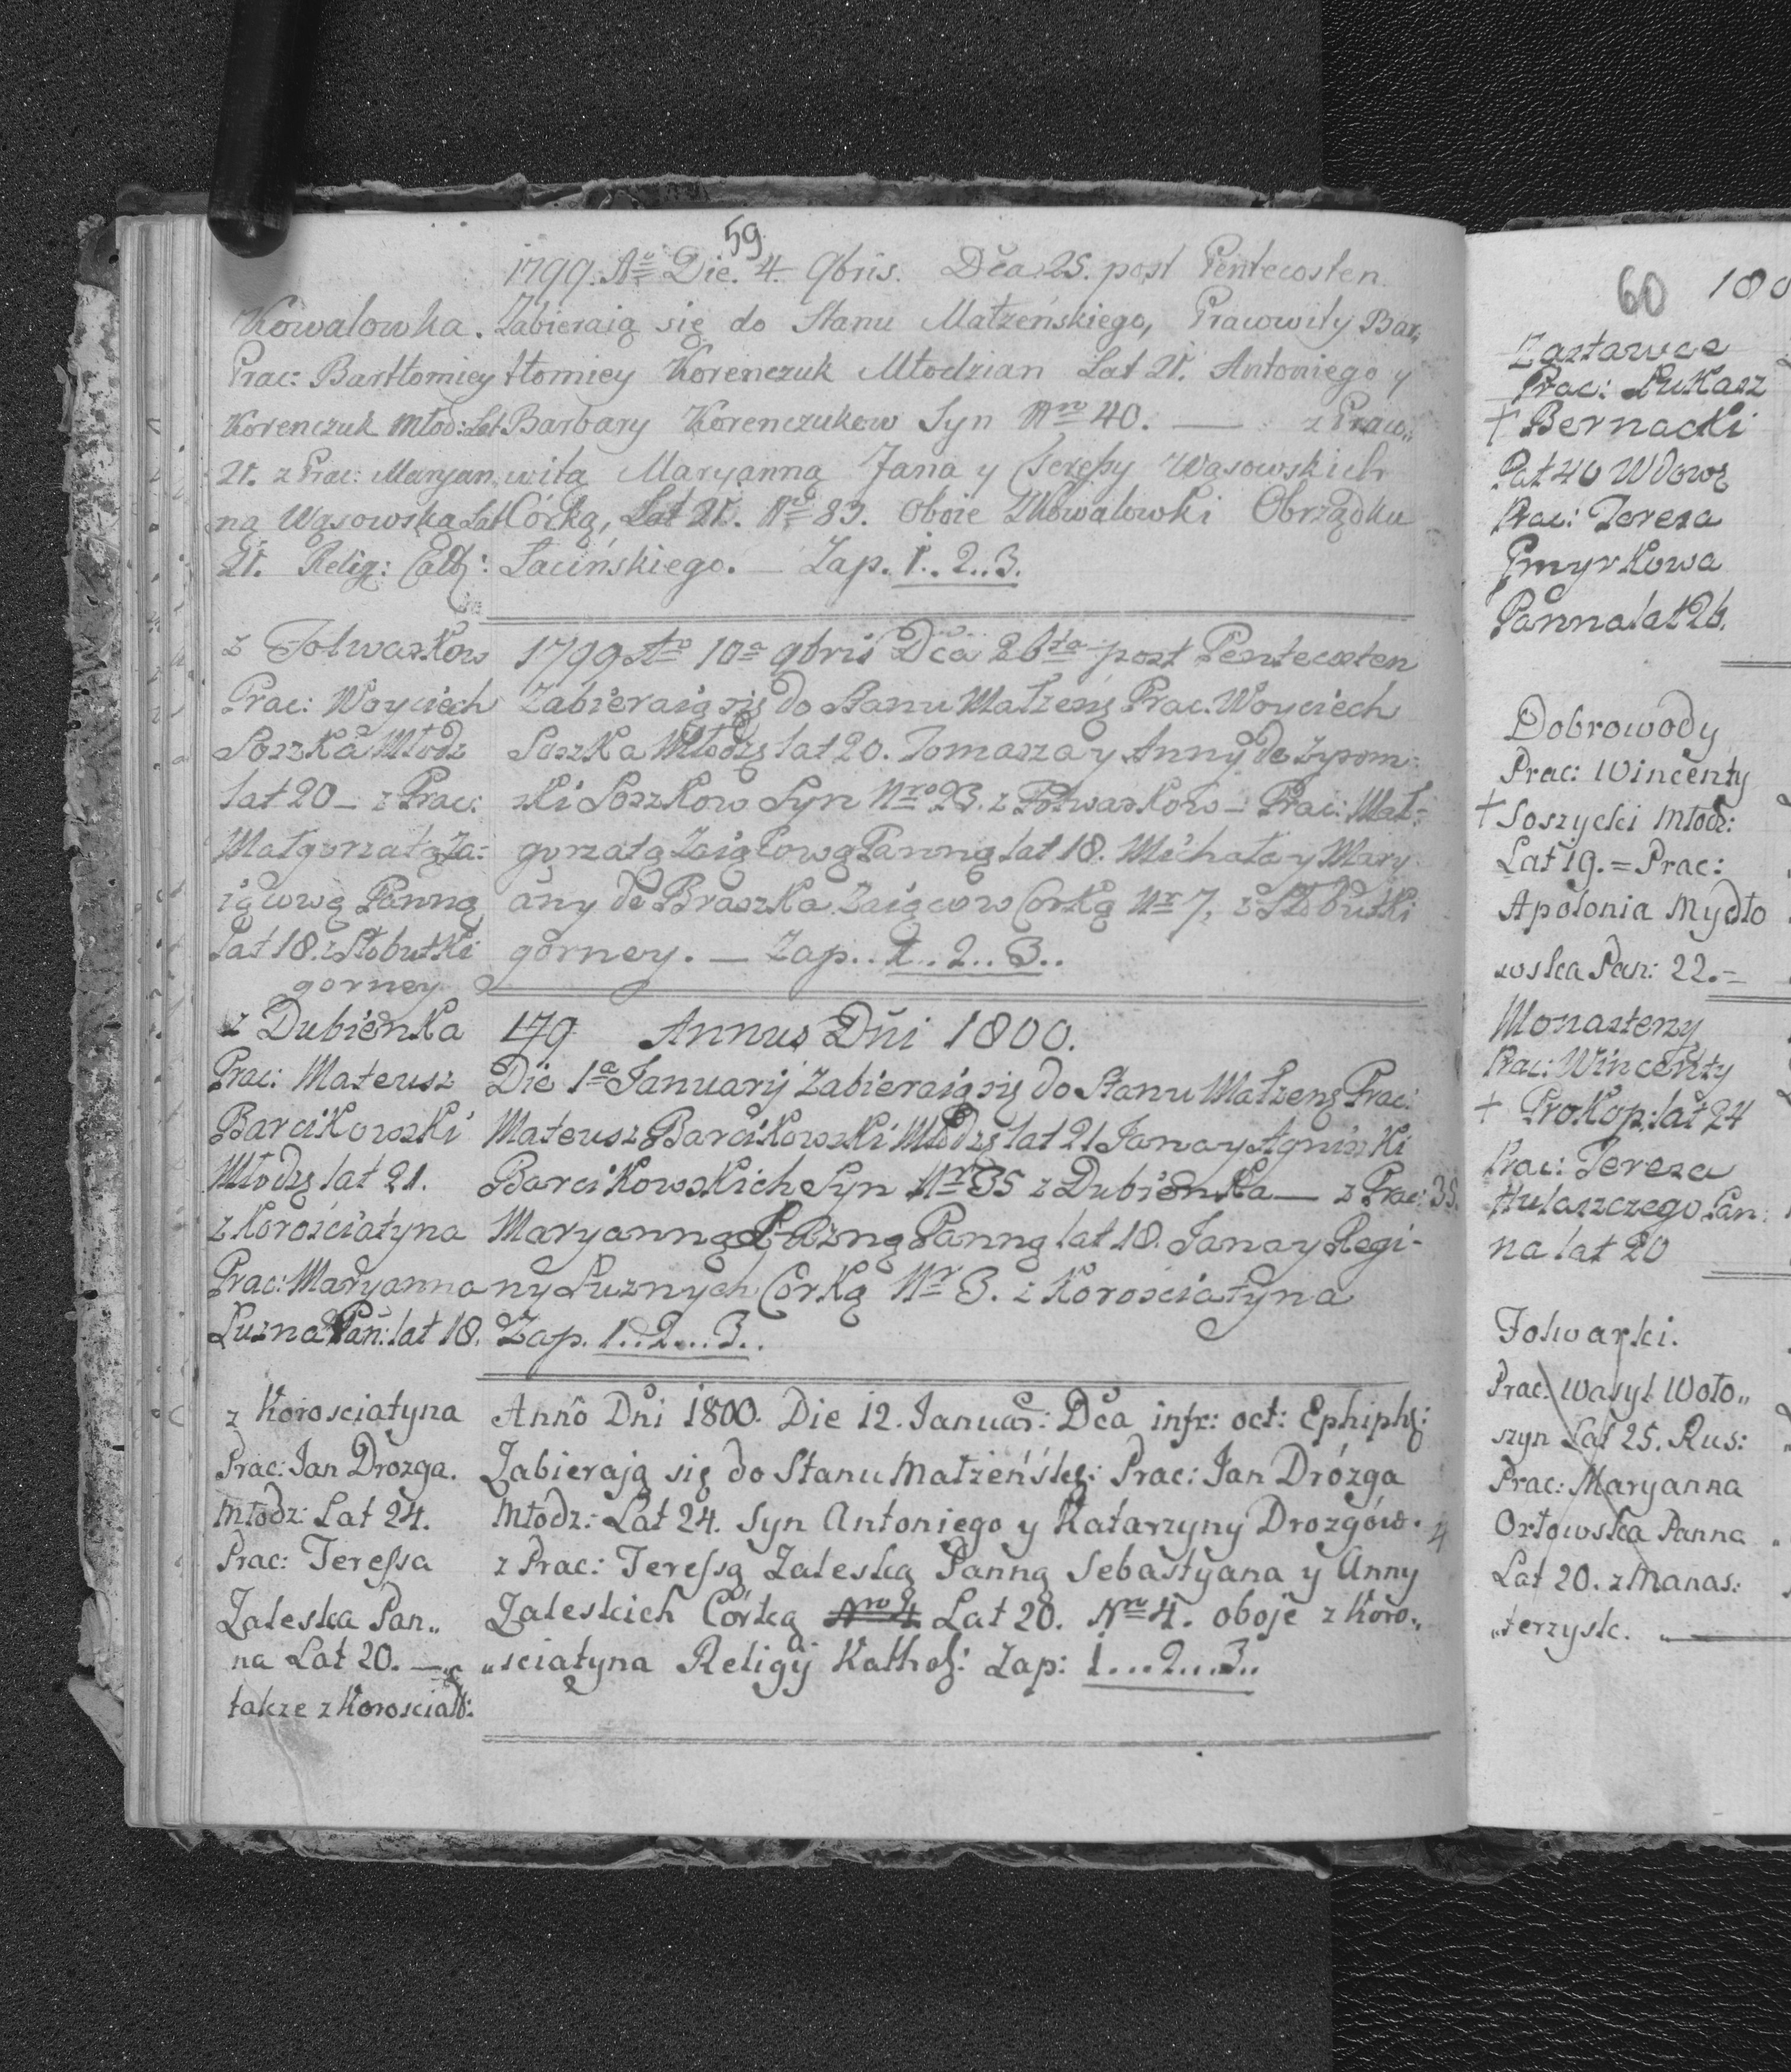 59
1799. Ao Die. 4. 9bris. Dca 25. post Pentecosten
Kowalowka.
Prac: Bartłomiey
Korenczuk Młod: Lat
21. z Prac: Maryan
ną Wąsowską Lat
21. Relig: Cath:
Zabieraią się do Stanu Małzeńskiego, Pracowity Bar,,
tłomiey Korenczuk Młodzian Lat 21. Antoniego y
Barbary Korenczukow Syn Nro 40. — z Praw,,
witą Maryanną Jana y Teressy Wąsowskich
Córką, Lat 21. Nro 83. Oboie z Kowalowki Obrządku
Łacińskiego. — Zap. 1..2..3.
z Folwarkow
Prac: Woyciech
Soszka Młodz
lat 20 – z Prac:
Małgorzatą Za=
iącową Panną
lat 18. z Słobutki
gorney
1799 Ao 10a 9bris Dca 26ta post Pentecosten
Zabieraią się do Stanu Małzens Prac. Woyciech
Soszka Młodzs lat 20. Tomasza y Anny de
ski Soszkow Syn Nro 23. z Folwarkow – Prac: Mał=
gorzatą Zaiącową Panną lat 18. Michała y Mary
any de Braszka Zaiącow Corką Nr 7, z Słobutki
gorney. — Zap.. 1..2..3..
z Dubienka
Prac: Mateusz
Barcikowski
Młodzs lat 21.
z Korościatyna
Prac: Maryanna
Luzna Pan: lat 18.
179 Annus Dni 1800.
Die 1a Januarij Zabieraią się do Stanu Małzens Prac:
Mateusz Barcikowski Młodzs lat 21 Jana y Agniszki
Barcikowskich Syn Nr 35 z Dubienka — z Prac: 35.
Maryanną Luzną Panną lat 18. Jana y Regi-
ny Luznych Corką Nr 3. z Korosciatyna
Zap. 1..2...3..
z Korosciatyna
Prac: Jan Drozga.
Młodz: Lat 24.
Prac: Teressa
Zaleska Pan,,
na Lat 20. —
takze z Korosciat:
Anno Dni 1800. Die 12. Januar: Dca infr: oct: Ephiph:
Zabierają się do Stanu Małzeńsk: Prac: Jan Drózga
Młodz: Lat 24. Syn Antoniego y Katarzyny Drozgów. 4
z Prac: Teressą Zaleską Panną Sebastyana y Anny
Zaleskich Córką Nro 4 Lat 20. Nro 4. oboje z Koro,,
,,sciatyna Religij Kathol: Zap: 1...2...3..
60 180
Zastawce
Prac: Lukasz
+ Bernacki
Lat 40 Wdow
Prac: Teresa
Panna lat 26.
Dobrowody
Prac: Wincenty
+ Soszycki Młodz:
Lat 19. = Prac:
Apolonia Mydło
wska Pan: 22. –
Monasterzy
Prac: Wincenty
+ Prokop: lat 24
Prac: Teresa
Hulaszczego Pan:
na lat 20
Folwarki.
Prac: Wasyl Woło,,
szyn Lat 25. Rus:
Prac: Maryanna
Orłowska Panna
Lat 20. z Manas:
,,terzysk.